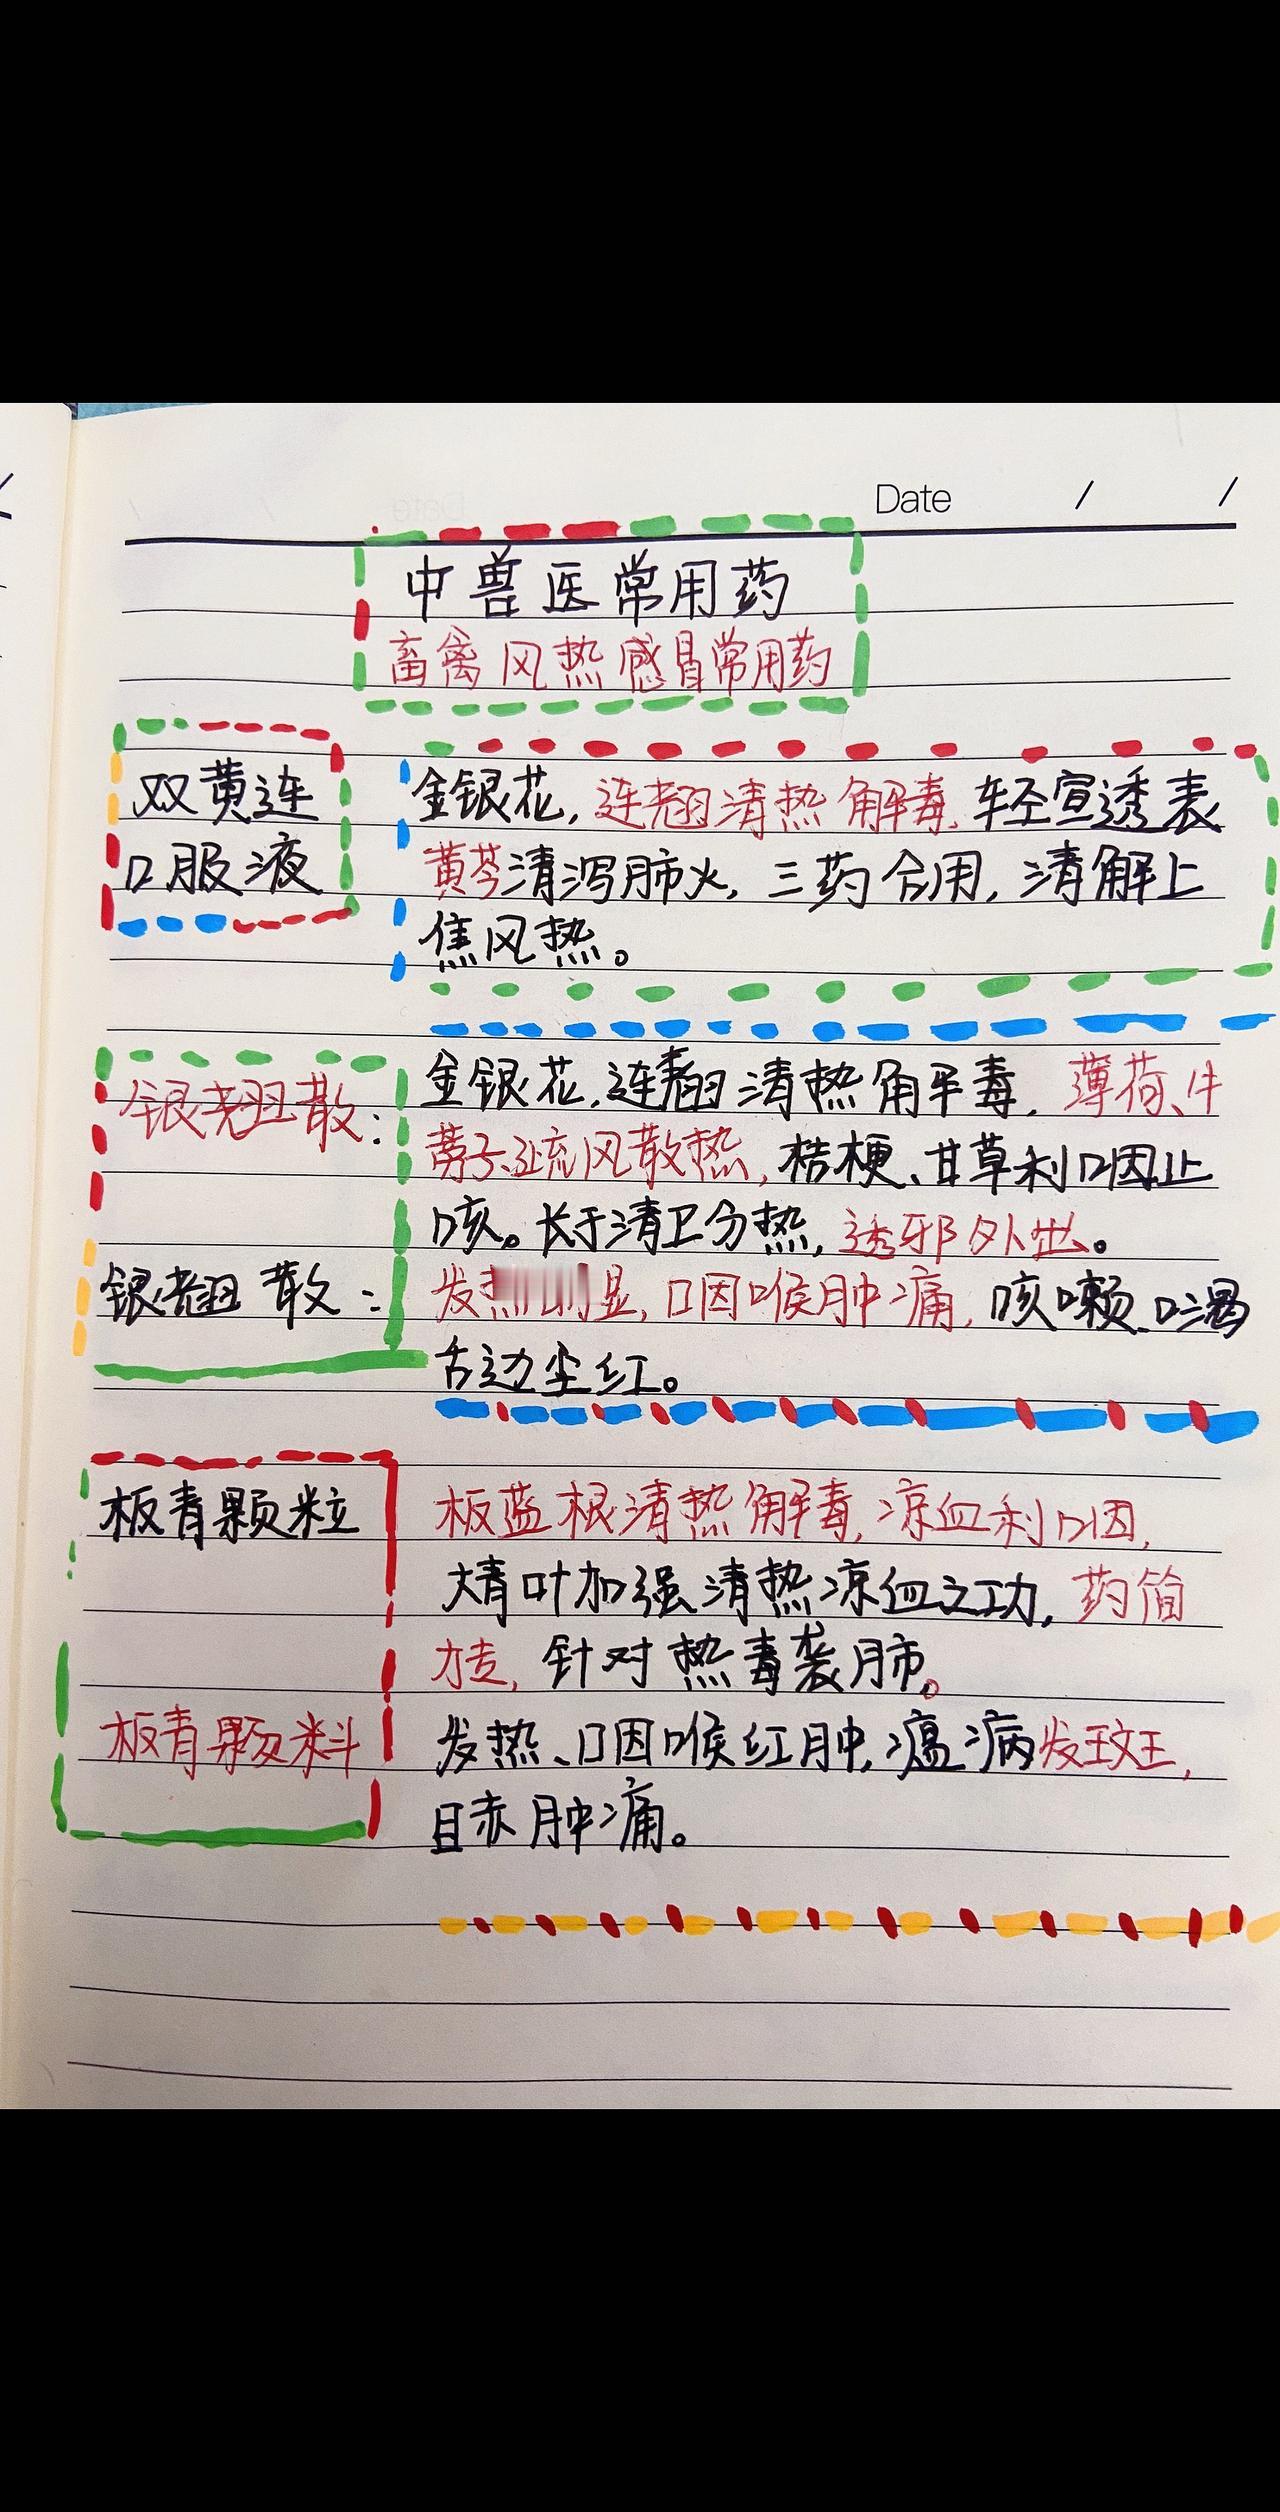 Date / /
中兽医常用药
畜禽风热感冒常用药
双黄连
口服液
金银花,连翘清热解毒,轻宣透表
黄芩清泻肺火,三药合用,清解上
焦风热。
银翘散:
金银花,连翘清热解毒,薄荷、牛
蒡子疏风散热,桔梗、甘草利咽止
咳。长于清卫分热,透邪外出。
银翘散:
发热明显,咽喉肿痛,咳嗽、口渴
舌边尘红。
板青颗粒
板蓝根清热解毒,凉血利咽,
大青叶加强清热凉血之功,药简
力专,针对热毒袭肺。
板青颗料
发热、咽喉红肿,瘟病发斑,
目赤肿痛。